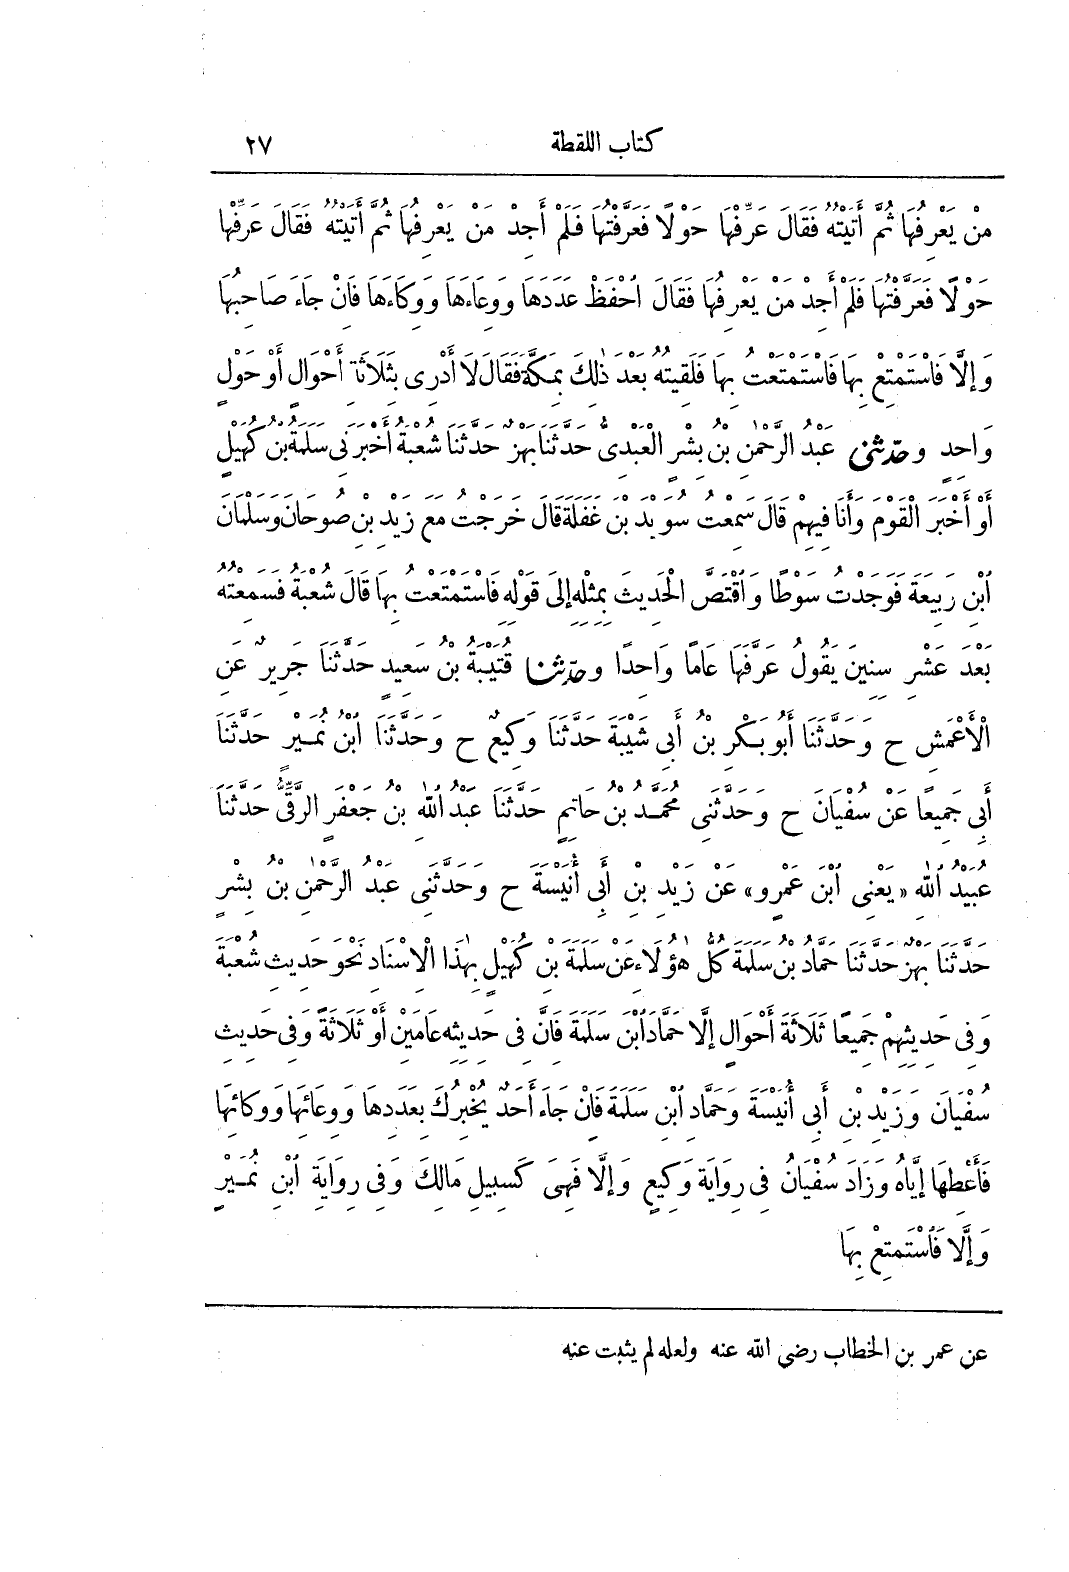 كتاب اللقطة ٢٧
مَنْ يَعْرِفُهَا ثُمَّ أَتَيْتُهُ فَقَالَ عَرِّفْهَا حَوْلًا فَعَرَّفْتُهَا فَلَمْ أَجِدْ مَنْ يَعْرِفُهَا ثُمَّ أَتَيْتُهُ فَقَالَ عَرِّفْهَا
حَوْلًا فَعَرَّفْتُهَا فَلَمْ أَجِدْ مَنْ يَعْرِفُهَا فَقَالَ احْفَظْ عَدَدَهَا وَوِعَاءَهَا وَوِكَاءَهَا فَانْ جَاءَ صَاحِبُهَا
وَإِلَّا فَاسْتَمْتِعْ بِهَا فَاسْتَمْتَعْتُ بِهَا فَلَقِيتُهُ بَعْدَ ذٰلِكَ بِمَكَّةَ فَقَالَ لَا أَدْرِى بِثَلَاثَةِ أَحْوَالٍ أَوْ حَوْلٍ
وَاحِدٍ وحدّثنى عَبْدُ الرَّحْمٰنِ بْنُ بِشْرٍ الْعَبْدِىُّ حَدَّثَنَا بَهْزٌ حَدَّثَنَا شُعْبَةُ أَخْبَرَنِى سَلَمَةُ بْنُ كُهَيْلٍ
أَوْ أَخْبَرَ الْقَوْمَ وَأَنَا فِيهِمْ قَالَ سَمِعْتُ سُوَيْدَ بْنَ غَفَلَةَ قَالَ خَرَجْتُ مَعَ زَيْدِ بْنِ صُوحَانَ وَسَلْمَانَ
ابْنِ رَبِيعَةَ فَوَجَدْتُ سَوْطًا وَاقْتَصَّ الْحَدِيثَ بِمِثْلِهِ إِلَى قَوْلِهِ فَاسْتَمْتَعْتُ بِهَا قَالَ شُعْبَةُ فَسَمِعْتُهُ
بَعْدَ عَشْرِ سِنِينَ يَقُولُ عَرَّفَهَا عَامًا وَاحِدًا وحدّثنا قُتَيْبَةُ بْنُ سَعِيدٍ حَدَّثَنَا جَرِيرٌ عَنِ
الْأَعْمَشِ ح وَحَدَّثَنَا أَبُو بَكْرِ بْنُ أَبِى شَيْبَةَ حَدَّثَنَا وَكِيعٌ ح وَحَدَّثَنَا ابْنُ نُمَيْرٍ حَدَّثَنَا
أَبِى جَمِيعًا عَنْ سُفْيَانَ ح وَحَدَّثَنِى مُحَمَّدُ بْنُ حَاتِمٍ حَدَّثَنَا عَبْدُ اللهِ بْنُ جَعْفَرٍ الرَّقِّىُّ حَدَّثَنَا
عُبَيْدُ اللهِ «يَعْنِى ابْنَ عَمْرٍو» عَنْ زَيْدِ بْنِ أَبِى أُنَيْسَةَ ح وَحَدَّثَنِى عَبْدُ الرَّحْمٰنِ بْنُ بِشْرٍ
حَدَّثَنَا بَهْزٌ حَدَّثَنَا حَمَّادُ بْنُ سَلَمَةَ كُلُّ هٰؤُلَاءِ عَنْ سَلَمَةَ بْنِ كُهَيْلٍ بِهٰذَا الْاِسْنَادِ نَحْوَ حَدِيثِ شُعْبَةَ
وَفِى حَدِيثِهِمْ جَمِيعًا ثَلَاثَةَ أَحْوَالٍ إِلَّا حَمَّادَ ابْنَ سَلَمَةَ فَانَّ فِى حَدِيثِهِ عَامَيْنِ أَوْ ثَلَاثَةً وَفِى حَدِيثِ
سُفْيَانَ وَزَيْدِ بْنِ أَبِى أُنَيْسَةَ وَحَمَّادِ ابْنِ سَلَمَةَ فَانْ جَاءَ أَحَدٌ يُخْبِرُكَ بِعَدَدِهَا وَوِعَائِهَا وَوِكَائِهَا
فَأَعْطِهَا إِيَّاهُ وَزَادَ سُفْيَانُ فِى رِوَايَةِ وَكِيعٍ وَإِلَّا فَهِىَ كَسَبِيلِ مَالِكَ وَفِى رِوَايَةِ ابْنِ نُمَيْرٍ
وَإِلَّا فَاسْتَمْتِعْ بِهَا
عن عمر بن الخطاب رضى الله عنه ولعله لم يثبت عنه